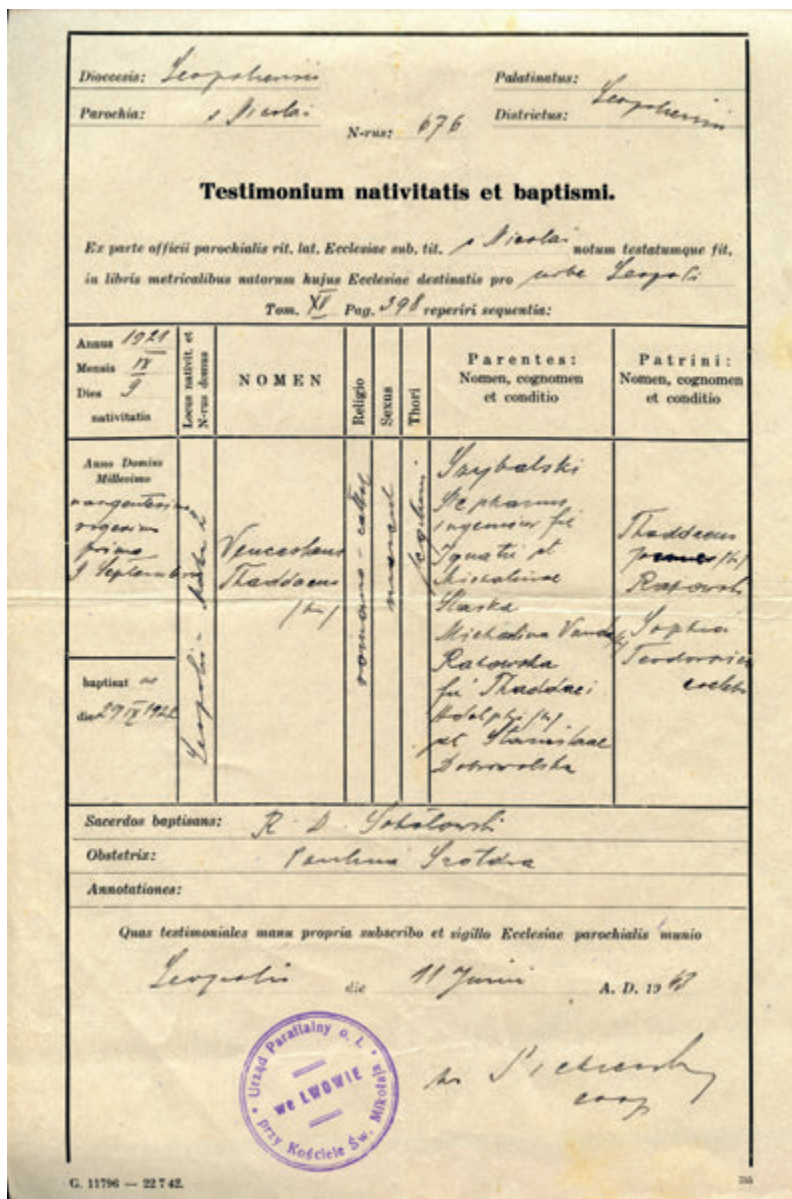 Dioecesis: Leopoliensis
Palatinatus:
Parochia: s Nicolai
Districtus: Leopoliensis
N-rus: 676
Testimonium nativitatis et baptismi.
Ex parte officii parochialis rit. lat. Ecclesiae sub. tit. s Nicolai notum testatumque fit,
in libris metricalibus natorum hujus Ecclesiae destinatis pro urbe Leopoli
Tom. XV Pag. 398 reperiri sequentia:
Annus 1921
Mensis IX
Dies 9
nativitatis
Locus nativit. et
N-rus domus
NOMEN
Religio
Sexus
Thori
Parentes:
Nomen, cognomen
et conditio
Patrini:
Nomen, cognomen
et conditio
Anno Domini
Millesimo
nongentesimo
vigesimo
primo
9 Septembris
baptisat us
die 29 IX 1922
Leopolis
Venceslaus
Thaddaeus
/tn/
romano-cathol
mascul
Szybalski
Stephanus
ingenieur fil
Ignatii et
Michalinae
Slaska
Michalina Vanda
Rakowska
fil Thaddaei
Adolphi /tn/
et Stanislaae
Dobrowolska
Thaddaeus
/tn/
Rakowski
Sophia
coelebs
Sacerdos baptisans: R. D. Sokołowski
Obstetrix: Paulina
Annotationes:
Quas testimoniales manu propria subscribo et sigillo Ecclesiae parochialis munio
Leopolis die 11 Junii A. D. 1943
Urząd Parafialny o. ł.
przy Kościele Św. Mikołaja
we LWOWIE
coop
G. 11796 — 22 7 42.